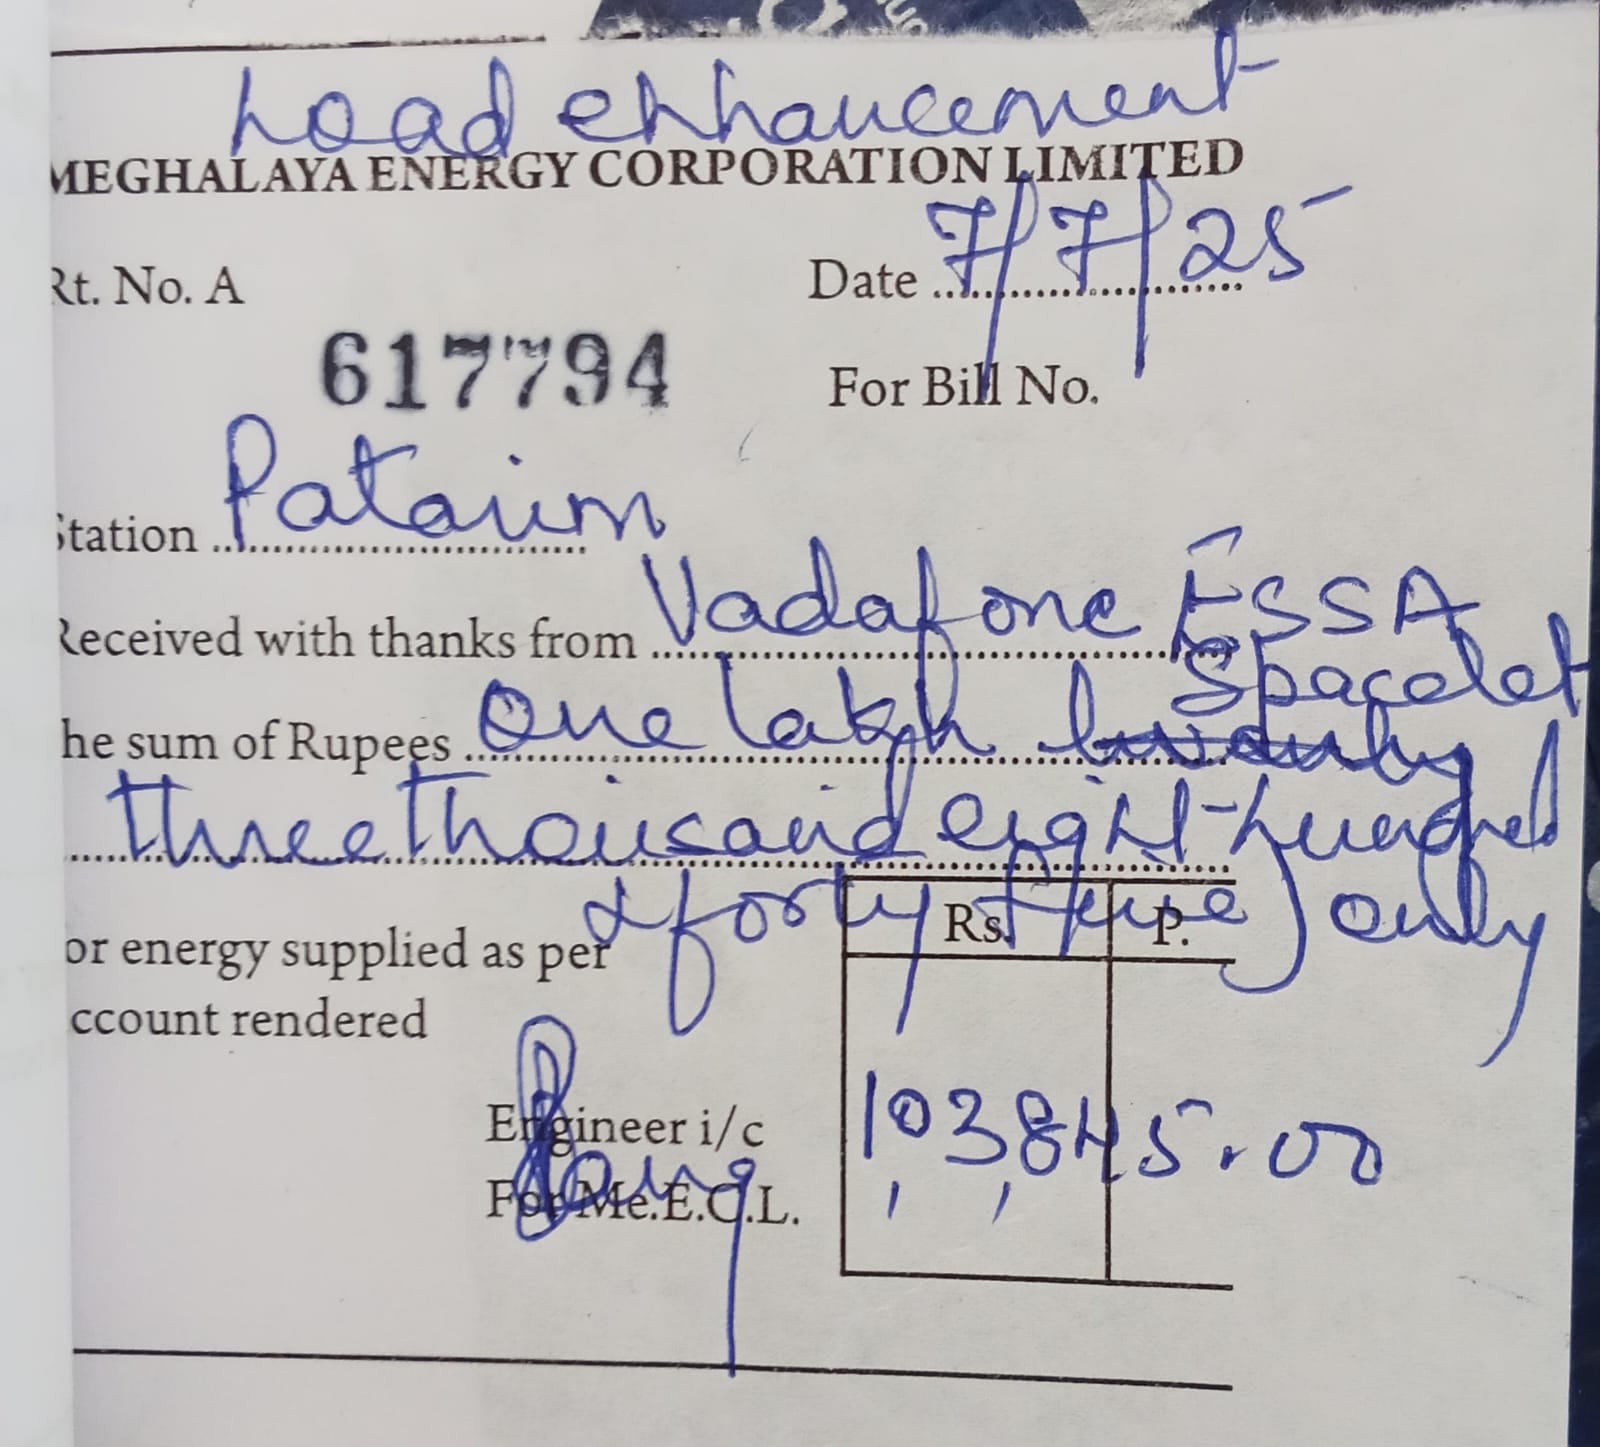 Load enhancement
MEGHALAYA ENERGY CORPORATION LIMITED
Rt. No. A
Date 7/7/25
617794
For Bill No.
Station Pataim
Received with thanks from Vadafone ESSA
Spacelet
he sum of Rupees One lakh
three thousand eight hundred
& forty five) only
Rs. P.
or energy supplied as per
ccount rendered
Engineer i/c
103845.00
For Me.E.C.L.